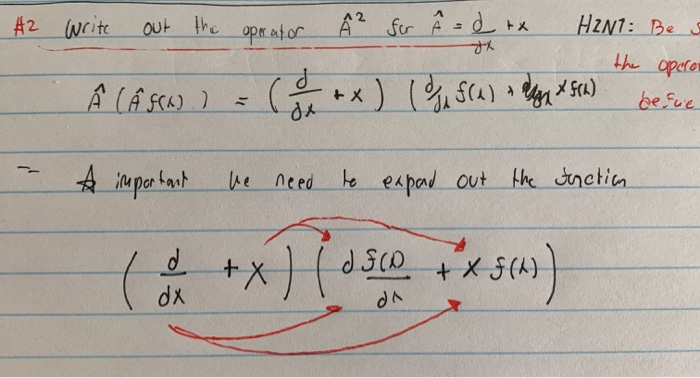 #2 Write out the operator Â² for Â = d/dx + x HINT: Be s
the opera
Â (Â f(x)) = (d/dx + x) (d/dx f(x) + x f(x)) before
= ☆ important we need to expad out the function
(d/dx + x) (d f(x)/dx + x f(x))